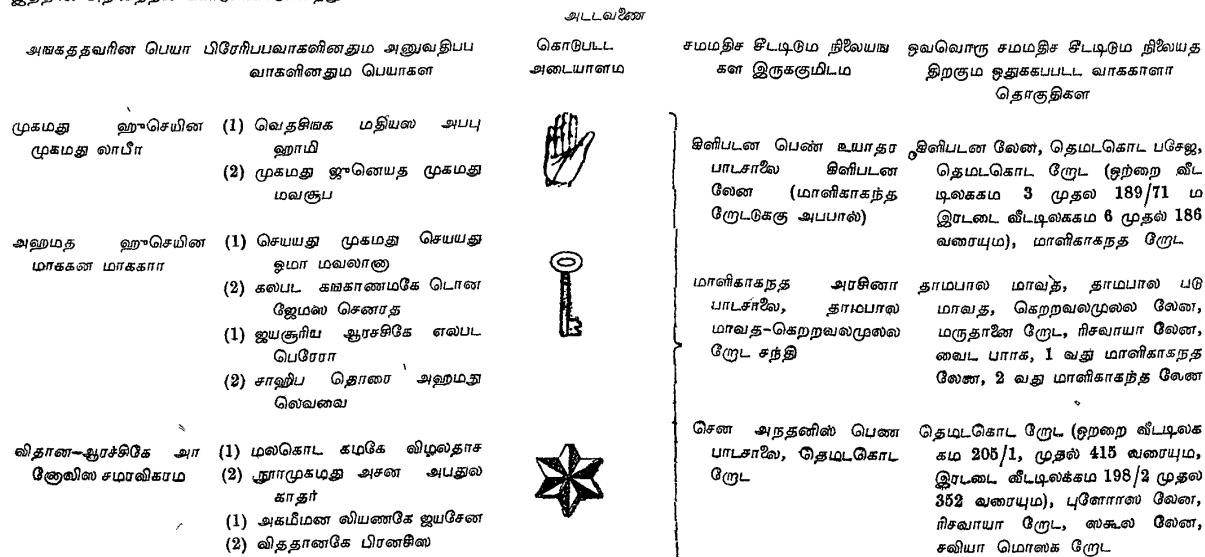 அடடவணை
அஙகததவரின பெயா
பிரேரிபபவாகளினதும அனுவதிபப
வாகளினதும பெயாகள
கொடுபடட
அடையாளம
சமமதிச சீடடிடும நிலையங
கள இருககுமிடம
ஒவவொரு சமமதிச சீடடிடும நிலையத
திறகும ஒதுககபபடட வாககாளா
தொகுதிகள
முகமது ஹுசெயின
முகமது லாபீா
(1) வெதசிஙக மதியஸ அபபு
ஹாமி
(2) முகமது ஜுனெயத முகமது
மவசூப
கிளிபடன பெண் உயாதர
பாடசாலை கிளிபடன
லேன (மாளிகாகந்த
றேடடுககு அபபால்)
கிளிபடன லேன, தெமடகொட பசேஜ,
தெமடகொட றேட (ஒற்றை வீட
டிலககம 3 முதல் 189/71 ம
இரடடை வீடடிலககம 6 முதல் 186
வரையும), மாளிகாகநத றேட
அஹமத ஹுசெயின
மாககன மாககாா
(1) செயயது முகமது செயயது
ஒமா மவலானா
(2) கலபட கஙகாணமகே டொன
ஜேமஸ் செனரத
(1) ஜயசூரிய ஆரசசிகே எலபட
பெரேரா
(2) சாஹிப தொரை அஹமது
லெவவை
மாளிகாகநத அரசினா
பாடசாலை, தாமபால
மாவத-கெறறவலமுலல
றேட சந்தி
தாமபால மாவத, தாமபால படு
மாவத, கெறறவலமுலல லேன,
மருதானை றேட, ரிசவாயா லேன,
வைட பாாக, 1 வது மாளிகாகநத
லேன, 2 வது மாளிகாகந்த லேன
விதான-ஆரச்சிகே அா
னோலிஸ சமரவிகரம
(1) மலகொட கமகே விமலதாச
(2) நூாமுகமது அசன அபதுல
காதர்
(1) அகமீமன லியணகே ஜயசேன
(2) விததானகே பிரனசிஸ
சென அநதனிஸ் பெண
பாடசாலை, தெமடகொட
றேட
தெமடகொட றேட (ஒறறை வீடடிலக
கம 205/1, முதல் 415 வரையும,
இரடடை வீடடிலக்கம 198/2 முதல்
352 வரையும), புளோாஸ லேன,
ரிசவாயா றேட, ஸகூல லேன,
சவியா மொஸக றேட